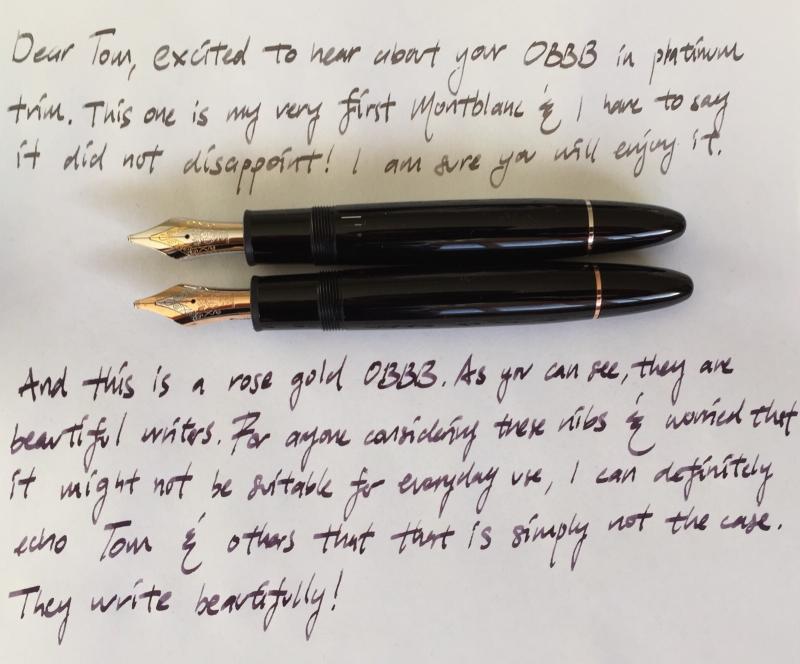 Dear Tom, excited to hear about your OBBB in platinum
trim. This one is my very first Montblanc & I have to say
it did not disappoint! I am sure you will enjoy it.
And this is a rose gold OBBB. As you can see, they are
beautiful writers. For anyone considering these nibs & worried that
it might not be suitable for everyday use, I can definitely
echo Tom & others that that is simply not the case.
They write beautifully!